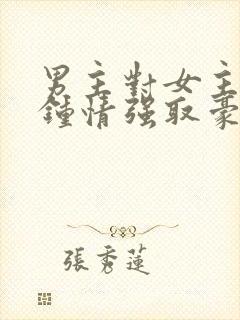 男主對女主
鍾情強取豪
張秀蓮